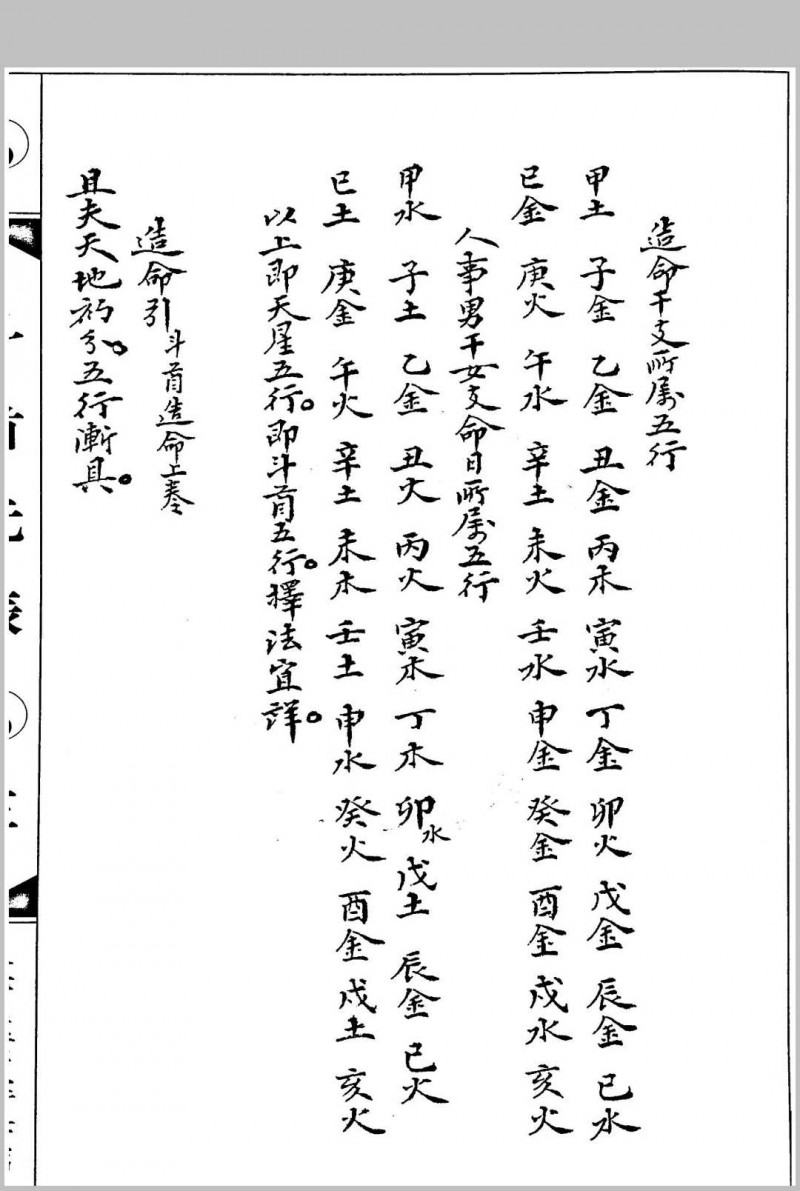 造命干支所属五行
甲土 子金 乙金 丑金 丙木 寅水 丁金 卯火 戊金 辰金 巳水
已金 庚火 午水 辛土 未火 壬水 申金 癸金 酉金 戍水 亥火
人事男干女支命日所属五行
甲水 子土 乙金 丑火 丙火 寅木 丁木 卯水 戊土 辰金 巳火
已土 庚金 午火 辛土 未木 壬土 申水 癸火 酉金 戍土 亥火
以上即天星五行。即斗首五行。择法宜詳。
造命引 斗首造命上奏
且夫天地初分。五行漸具。